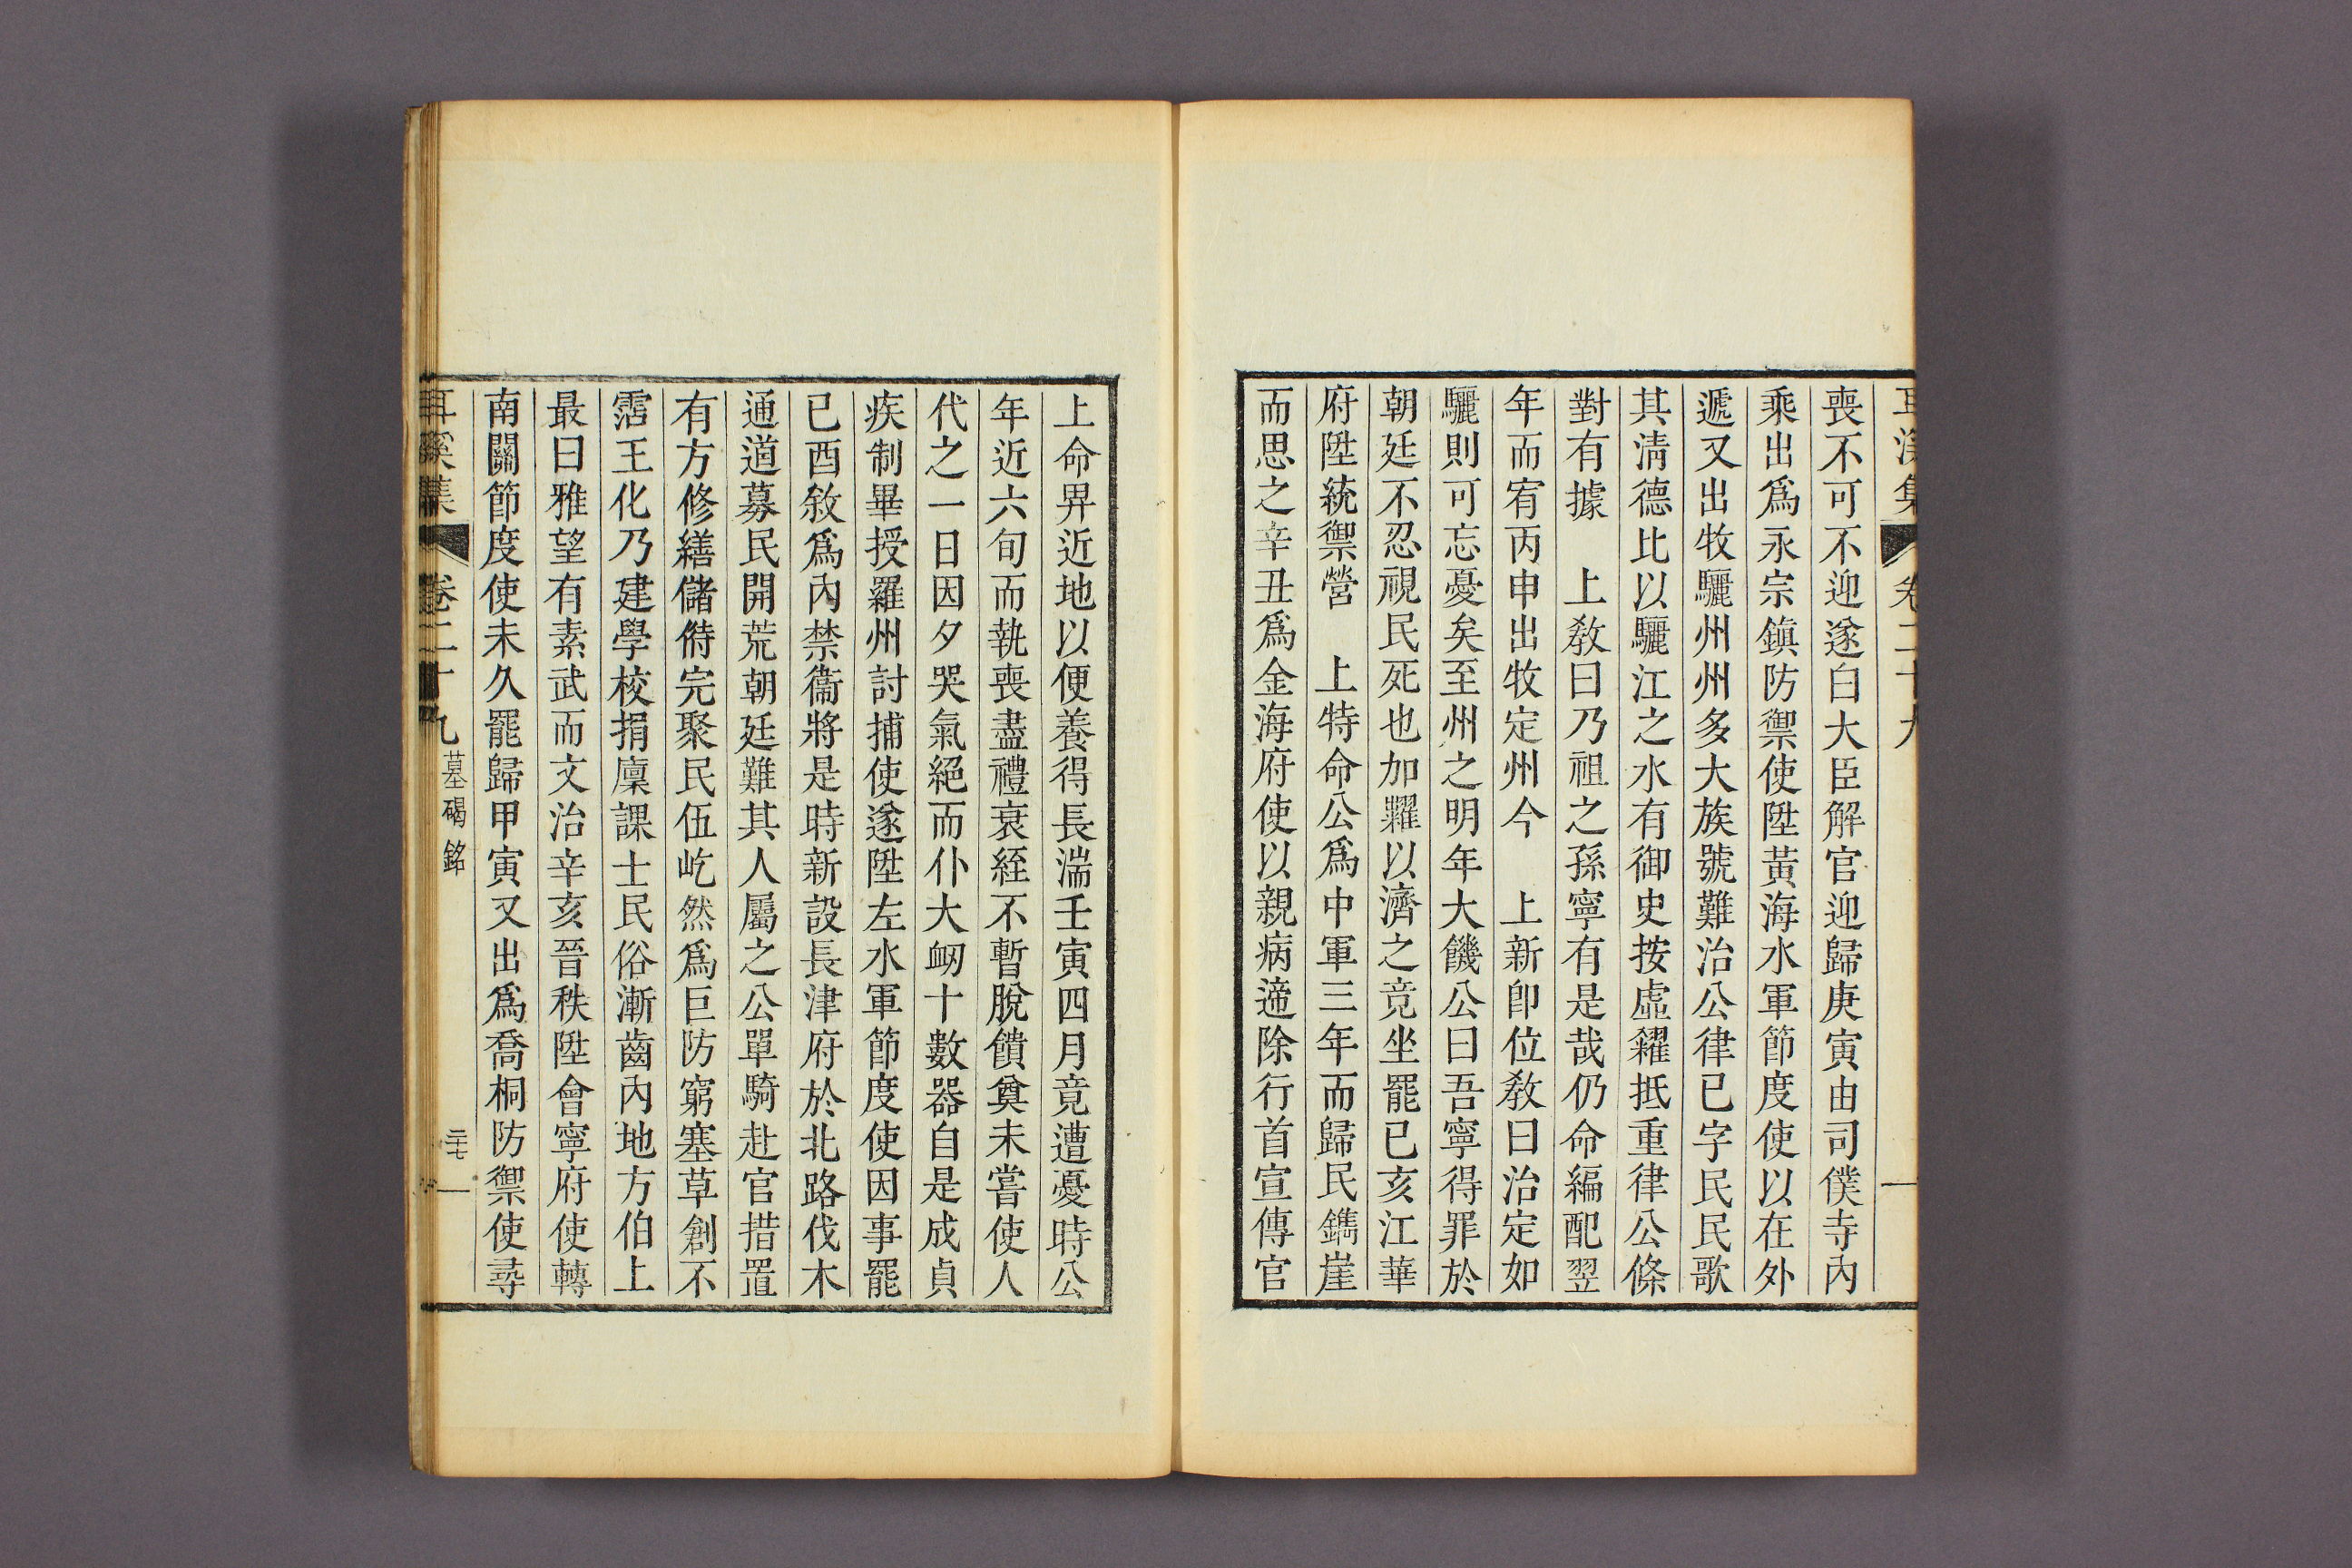 耳溪集 卷二十九
喪不可不迎遂白大臣解官迎歸庚寅由司僕寺內
乘出爲永宗鎭防禦使陞黃海水軍節度使以在外
遞又出牧驪州州多大族號難治公律已字民民歌
其淸德比以驪江之水有御史按虛糴抵重律公條
對有據　上敎曰乃祖之孫寧有是哉仍命編配翌
年而宥丙申出牧定州今　上新卽位敎曰治定如
驪則可忘憂矣至州之明年大饑公曰吾寧得罪於
朝廷不忍視民死也加糶以濟之竟坐罷已亥江華
府陞統禦營　上特命公爲中軍三年而歸民鐫崖
而思之辛丑爲金海府使以親病遞除行首宣傳官
上命畀近地以便養得長湍壬寅四月竟遭憂時公
年近六旬而執喪盡禮衰絰不暫脫饋奠未嘗使人
代之一日因夕哭氣絕而仆大衂十數器自是成貞
疾制畢授羅州討捕使遂陞左水軍節度使因事罷
已酉敘爲內禁衞將是時新設長津府於北路伐木
通道募民開荒朝廷難其人屬之公單騎赴官措置
有方修繕儲偫完聚民伍屹然爲巨防窮塞草創不
霑王化乃建學校捐廩課士民俗漸齒內地方伯上
最曰雅望有素武而文治辛亥晉秩陞會寧府使轉
南關節度使未久罷歸甲寅又出爲喬桐防禦使尋
耳溪集 卷二十九 墓碣銘 二十七